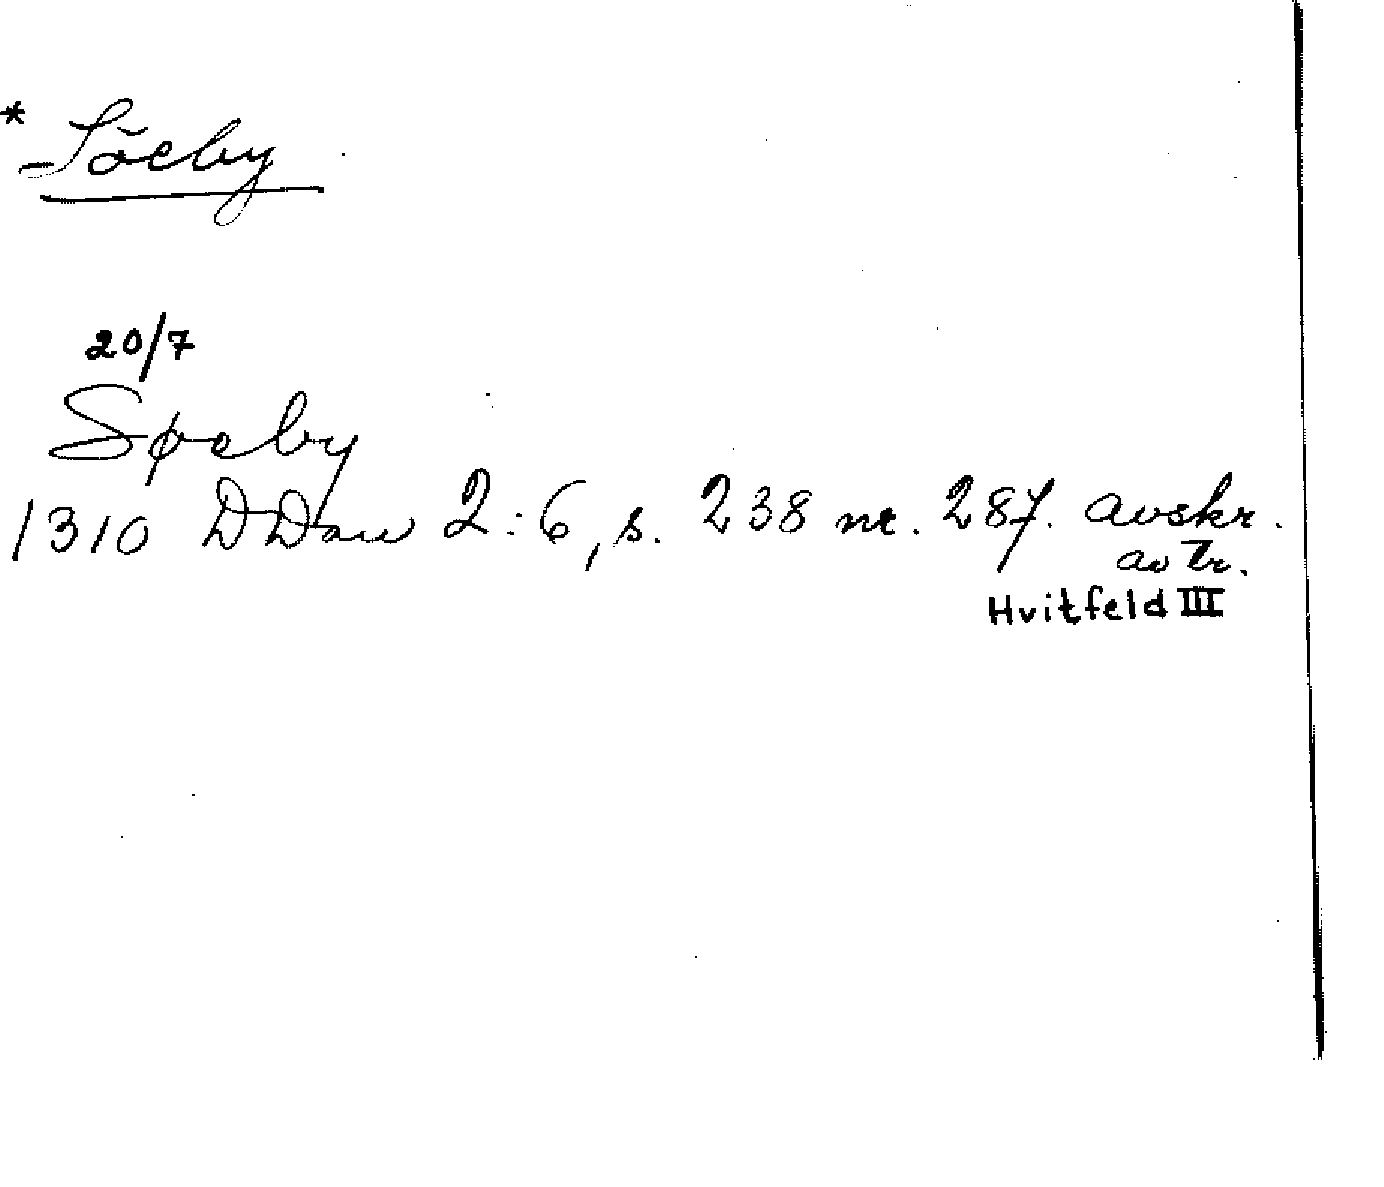 * Söeby
20/7
Søeby
1310 DDan 2:6, s. 238 nr. 287. avskr.
av Tr.
Hvitfeld III